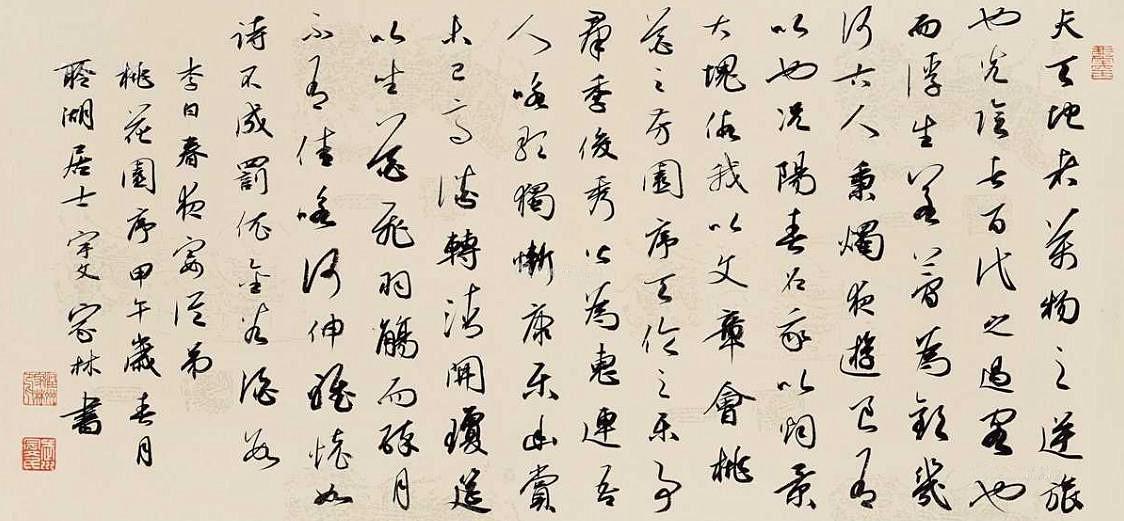 夫天地者萬物之逆旅
也光陰者百代之過客也
而浮生若夢為歡幾
何古人秉燭夜遊良有
以也況陽春召我以烟景
大塊假我以文章會桃
花之芳園序天倫之樂事
羣季俊秀皆為惠連吾
人咏歌獨慚康樂幽賞
未已高談轉清開瓊筵
以坐花飛羽觴而醉月
不有佳咏何伸雅懷如
詩不成罰依金谷酒數
李白春夜宴從弟
桃花園序甲午歲春月
聆湖居士宇文家林書